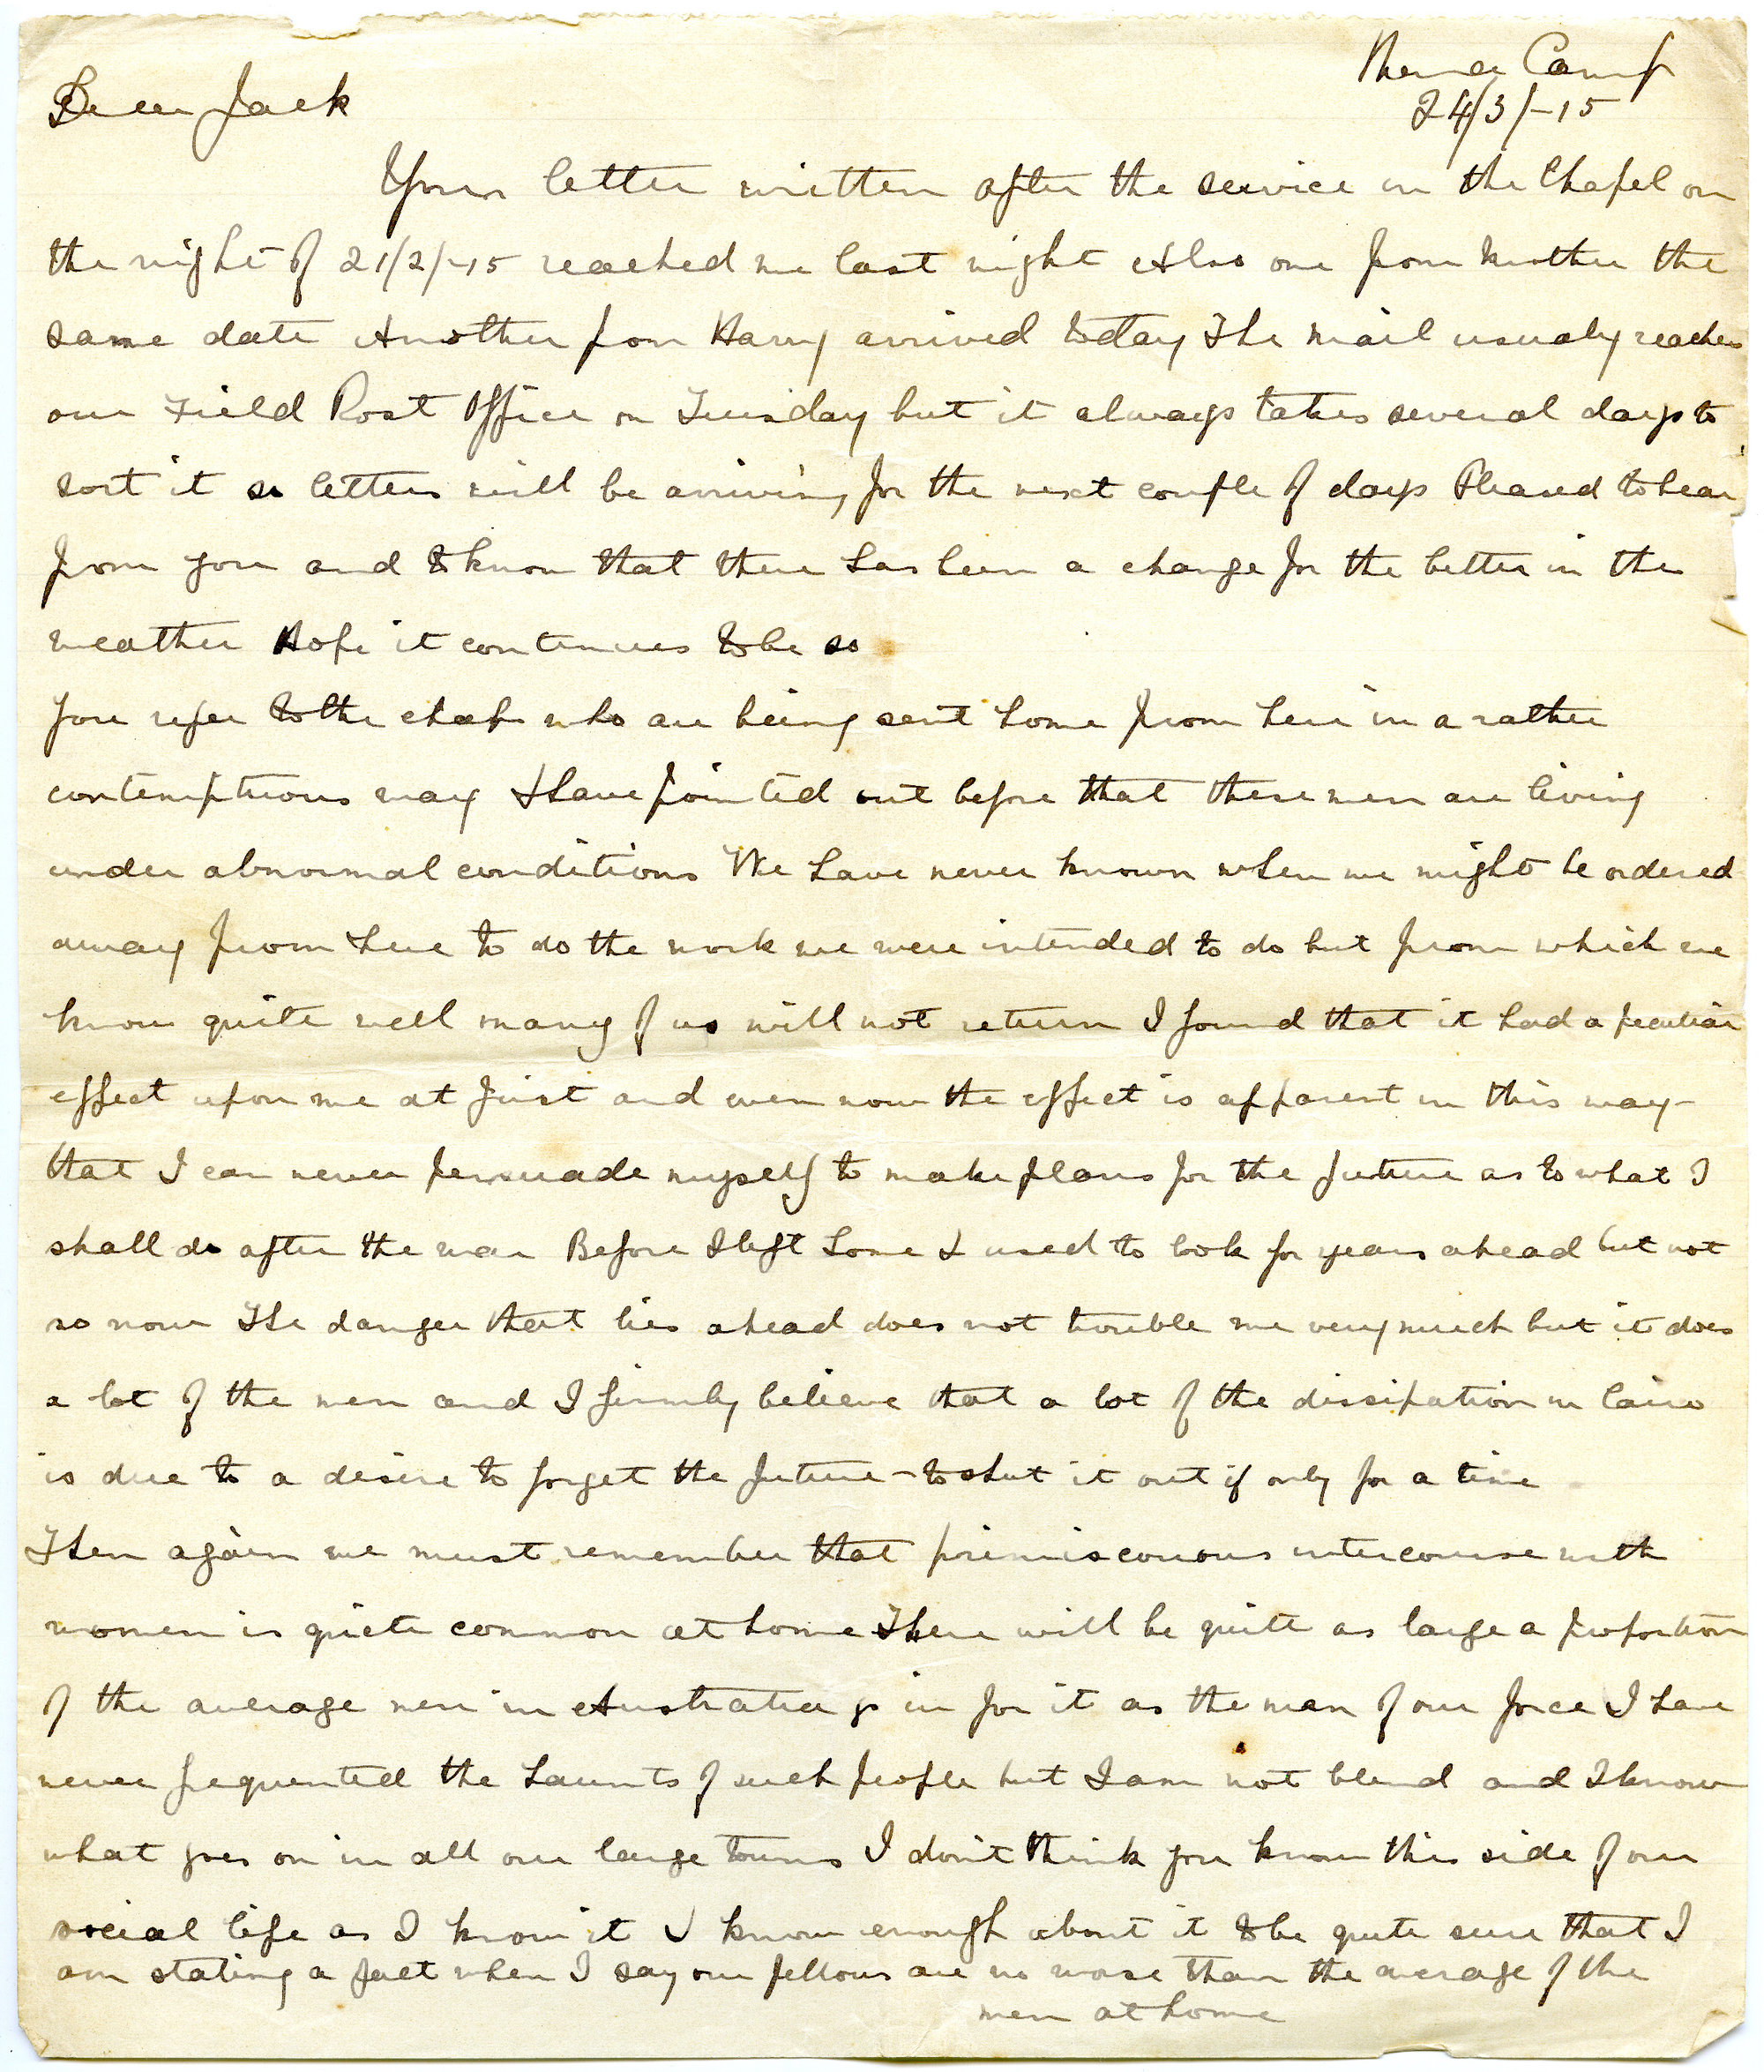 Mena Camp
24/3/-15
Dear Jack
Your letter written after the service in the Chapel on
the night of 21/2/-15 reached me last night Also one from Mother the
same date Another from Harry arrived today The mail usualy reaches
our Field Post Office on Tuesday but it always takes several days to
sort it so letters will be arriving for the next couple of days Pleased to hear
from you and to know that there has been a change for the better in the
weather Hope it continues to be so
You refer to the chaps who are being sent home from here in a rather
contemptuous way I have pointed out before that these men are living
under abnormal conditions We have never known when we might be ordered
away from here to do the work we were intended to do but from which we
know quite well many of us will not return I found that it had a peculiar
effect upon me at first and even now the effect is apparent in this way-
that I can never persuade myself to make plans for the future as to what I
shall do after the war Before I left home I used to look for years ahead but not
so now The danger that lies ahead does not trouble me very much but it does
a lot of the men and I firmly believe that a lot of the dissipation in Cairo
is due to a desire to forget the future - to shut it out if only for a time
Then again we must remember that primiscouous intercourse with
women is quiete common at home There will be quite as large a proportion
of the average men in Australia go in for it as the men of our force I have
never frequented the haunts of such people but I am not blind and I know
what goes on in all our large towns I don't think you know this side of our
social life as I know it I know enough about it to be quite sure that I
am stating a fact when I say our fellows are no worse than the average of the
men at home